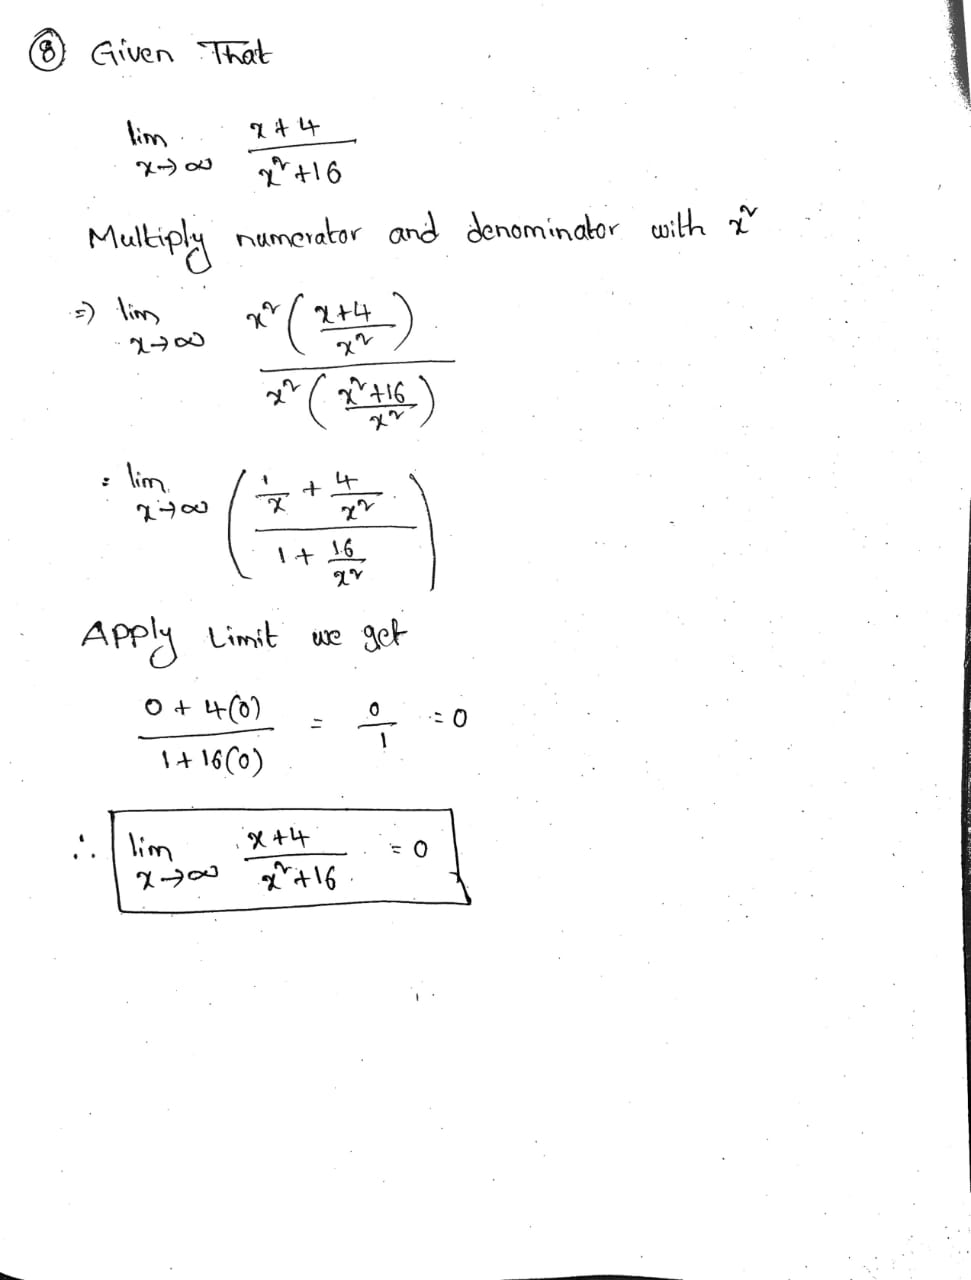 ⑧ Given That
lim x→∞ (x+4)/(x²+16)
Multiply numerator and denominator with x²
⇒ lim x→∞ (x²((x+4)/x²))/(x²((x²+16)/x²))
= lim x→∞ ((1/x + 4/x²)/(1 + 16/x²))
Apply Limit we get
(0 + 4(0))/(1 + 16(0)) = 0/1 = 0
∴ lim x→∞ (x+4)/(x²+16) = 0